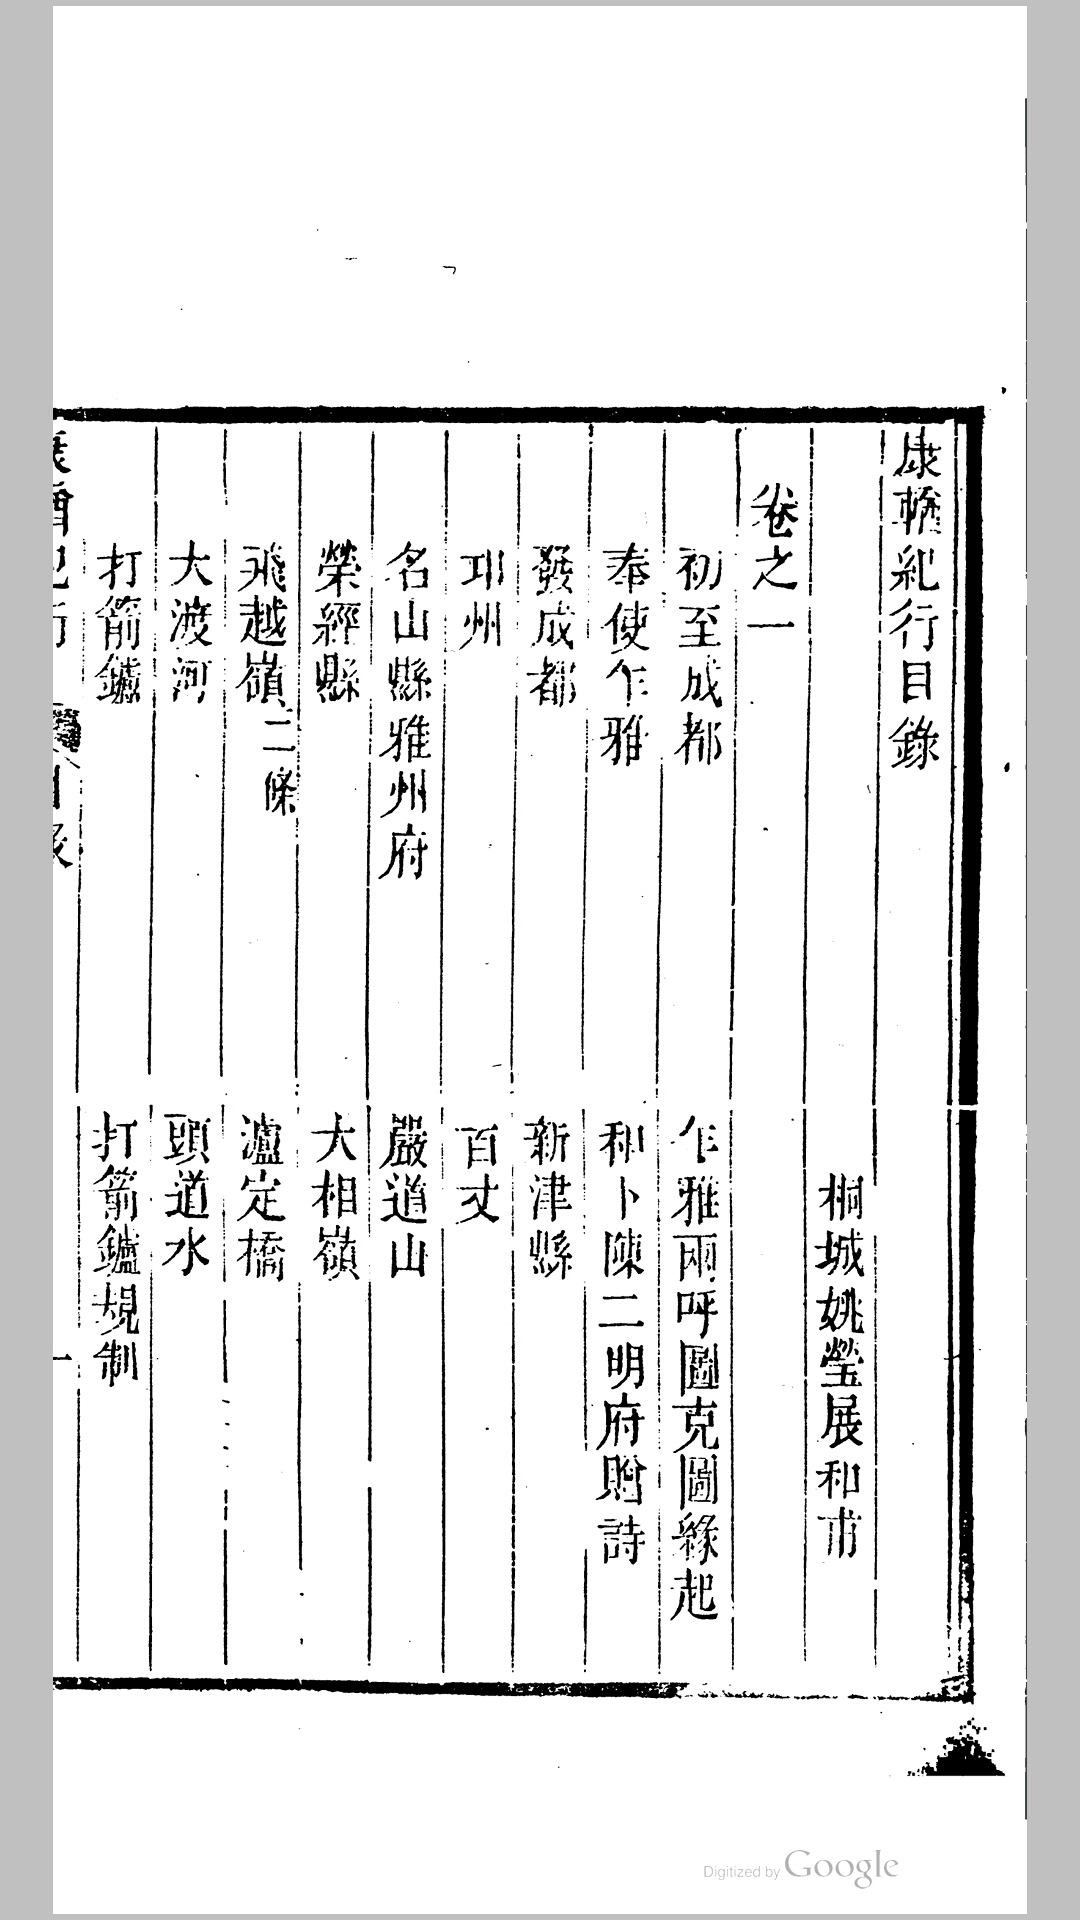 康輶紀行目錄
桐城姚瑩展和甫
卷之一
初至成都　乍雅兩呼圖克圖緣起
奉使乍雅　和卜陳二明府贈詩
發成都　新津縣
邛州　百丈
名山縣雅州府　嚴道山
榮經縣　大相嶺
飛越嶺二條　瀘定橋
大渡河　頭道水
打箭鑪　打箭鑪規制
一
Digitized by Google